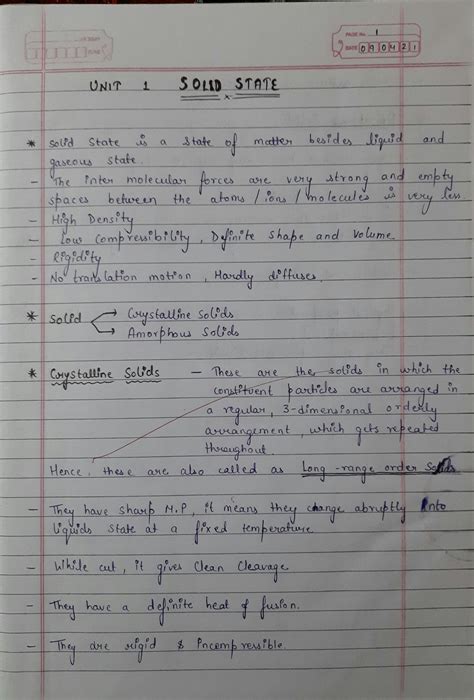 PAGE No. 1
DATE 09 04 21
UNIT 1 SOLID STATE
* Solid State is a state of matter besides liquid and
gaseous state.
- The inter molecular forces are very strong and empty
spaces between the atoms / ions / molecules is very less.
- High Density
- Low Compressibility, Definite Shape and Volume
- Rigidity
- No translation motion, Hardly diffuses.
* Solid → Crystalline Solids
→ Amorphous Solids
* Crystalline Solids - These are the solids in which the
constituent particles are arranged in
a regular, 3-dimensional orderly
arrangement, which gets repeated
throughout.
Hence, these are also called as Long-range order Solids
- They have sharp M.P, it means they change abruptly into
liquids state at a fixed temperature
- While cut, it gives Clean Cleavage
- They have a definite heat of fusion.
- They are rigid & incompressible